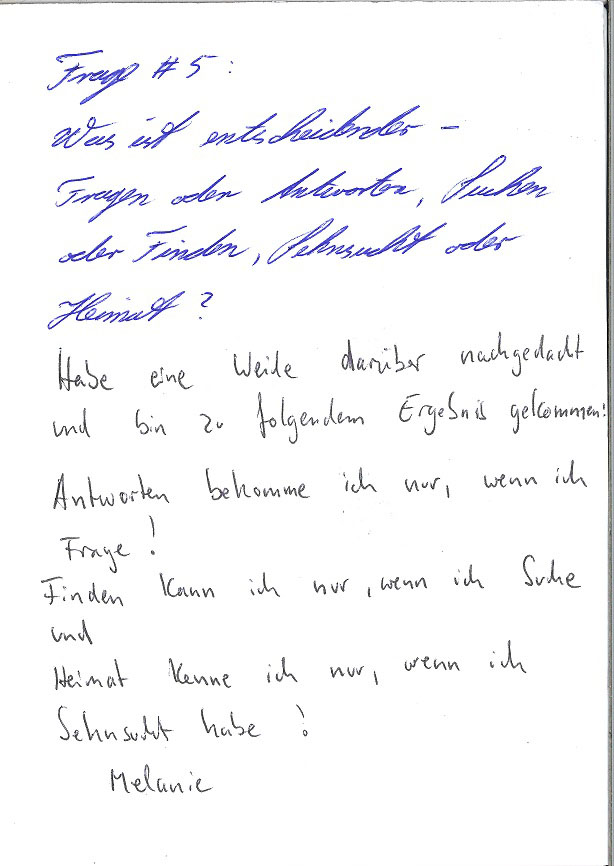 Frage # 5 :
Was ist entscheidender –
Fragen oder Antworten, Suchen
oder Finden, Sehnsucht oder
Heimat ?
Habe eine Weile darüber nachgedacht
und bin zu folgendem Ergebnis gekommen!
Antworten bekomme ich nur, wenn ich
Frage !
Finden kann ich nur, wenn ich Suche
und
Heimat kenne ich nur, wenn ich
Sehnsucht habe !
Melanie